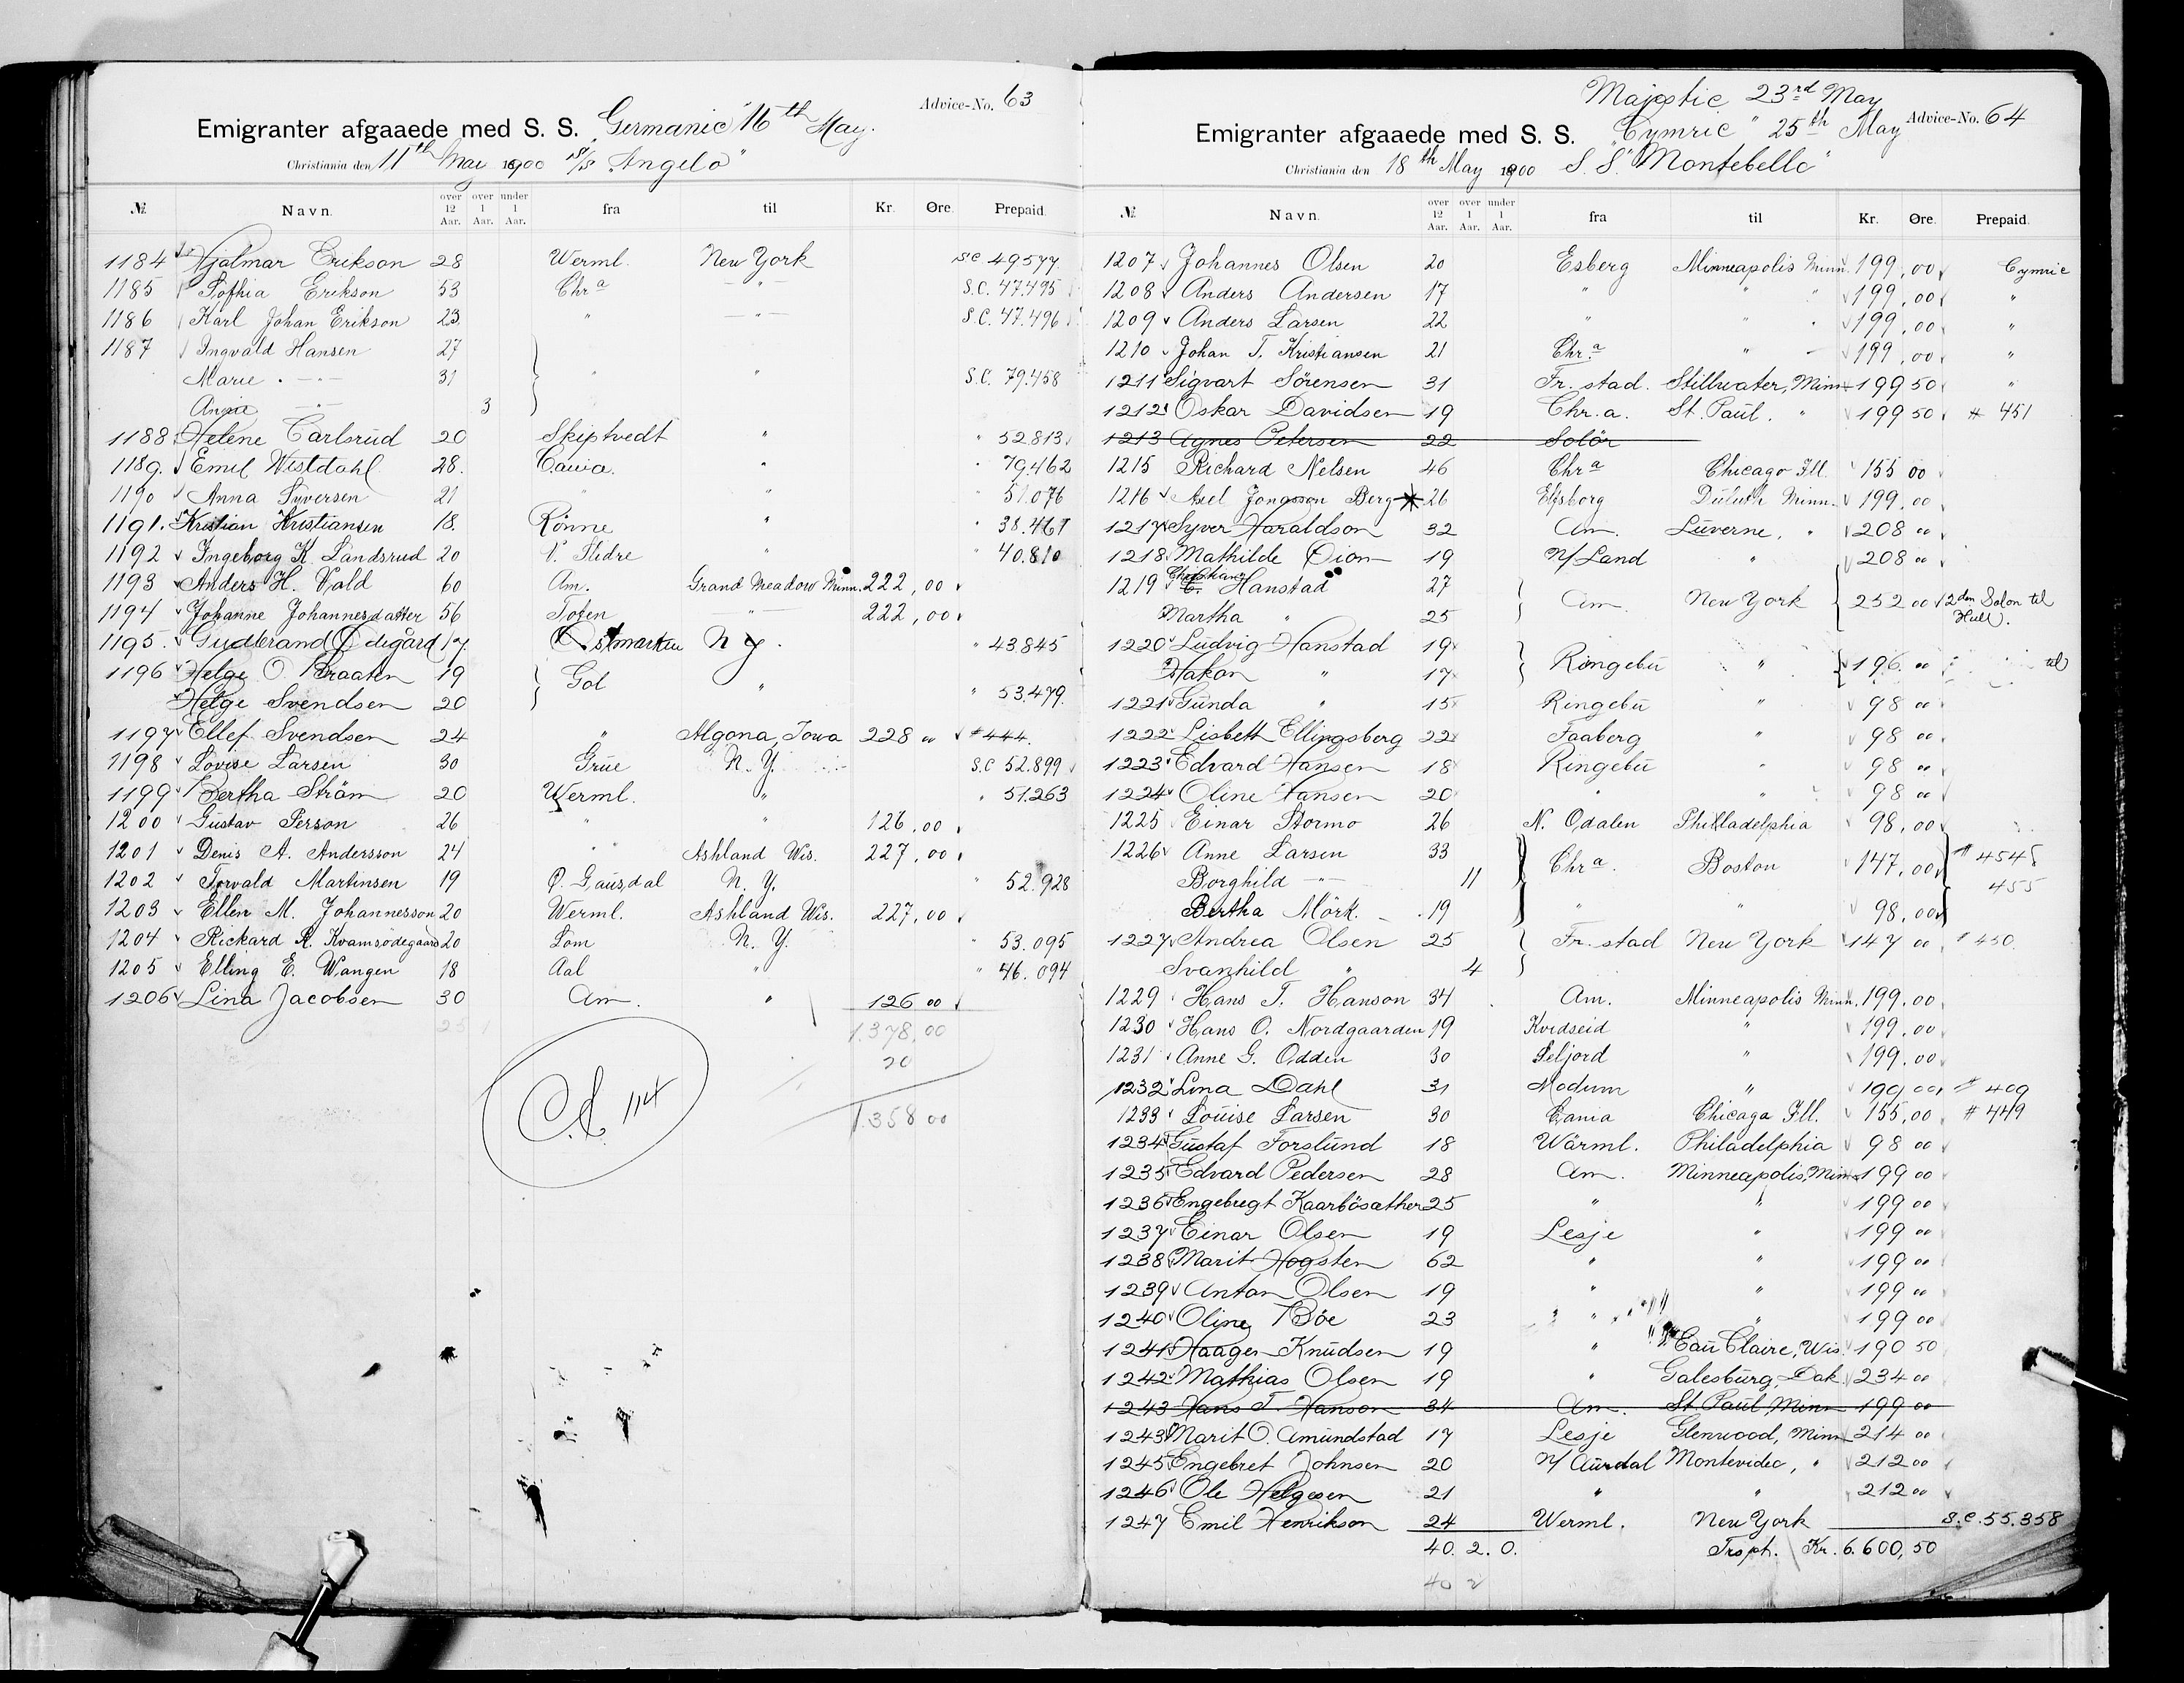 Advice-No. 63
Emigranter afgaaede med S. S. "Germanic" 16th May.
Christiania den 11th May 1900 S/S "Angelo"
№ Navn. over 12 Aar. over 1 Aar. under 1 Aar. fra til Kr. Øre. Prepaid.
1184 Hjalmar Erikson 28 Werml. New York SC 49577
1185 Sofhia Erikson 53 Chra — " — S.C. 47.495
1186 Karl Johan Erikson 23 " — " — S.C. 47.496
1187 Ingvald Hansen 27
Marie — " — 31 " " S.C. 79.458
Anna — " — 3
1188 Helene Carlsrud 20 Skiptvedt " " 52.813
1189. Emil Wistdahl 28. Cania. " " 79.462
1190 Anna Syversen 21 " " " 51.076
1191. Kristian Kristiansen 18. Rönne " " 38.467
1192 Ingeborg K. Landsrud 20 V. Slidre " " 40.810
1193 Anders H. Vald 60 Am. Grand Meadow Minn. 222,00
1194 Johanne Johannesdatter 56 Toten — " — 222,00
1195. Gudbrand Ødegård 17. Østmarken N y. " 43845
1196 Helge O. Braaten 19 Gol
Helge Svendsen 20 " " 53.479.
1197 Ellef Svendsen 24 " Algona, Iowa 228 00 # 444.
1198 Lovise Larsen 30 Grue N. Y. S.C 52.899
1199 Bertha Ström 20 Werml. " " 51.263
1200 Gustav Person 26 " " 126,00
1201 Denis A. Andersson 24 " " Ashland Wis. 227,00
1202 Torvald Martinsen 19 Ø. Gausdal N. Y. " 52.928
1203 Ellen M. Johannesson 20 Werml. Ashland Wis. 227,00
1204 Rickard R. Kvamsödegaard 20 Lom N. Y. " 53.095
1205 Elling E. Wangen 18 Aal " " 46.094
1206 Lina Jacobsen 30 Am. " 126 00
25 1 1.378,00
20
114
1.358 00
Majestic 23rd May
Advice-No. 64
Emigranter afgaaede med S. S. "Cymric" 25th May
Christiania den 18th May 1900 S. S. "Montebello"
№ Navn. over 12 Aar. over 1 Aar. under 1 Aar. fra til Kr. Øre. Prepaid.
1207 Johannes Olsen 20 Esberg Minneapolis Minn. 199,00 Cymric
1208 Anders Andersen 17 " " " 199,00 "
1209 Anders Larsen 22 " " " 199,00 "
1210 Johan T. Kristiansen 21 Chr.a " 199,00 "
1211 Sigvart Sörensen 31 Fr. stad. Stillwater, Minn 199 50 "
1212 Oskar Davidsen 19 Chr. a. St. Paul. " 199 50 # 451
1213 Agnes Petersen 22 Solör
1215 Richard Nelsen 46 Chra Chicago Ill. 155 00
1216 Axel Jongsson Berg 26 Elfsborg Duluth Minn. 199.00
1217 Syver Haraldson 32 Am. Luverne, " 208 00
1218 Mathilde Öion 19 N/Land " 208 00
1219 Hanstad 27
Am. New York 252 00 2den Salon til Hull.
Martha " 25
1220 Ludvig Hanstad 19
Ringebu " 196 00 til
Hakon " 17
1221 Gunda " 15 Ringebu " 98 00
1222 Lisbett Ellingsberg 22 Faaberg " 98 00
1223 Edvard Hansen 18 Ringebu " 98 00
1224 Oline Hansen 20 " " 98 00
1225 Einar Stormo 26 N. Odalen Philladelphia 98,00
1226 Anne Larsen 33 Chra. Boston 147,00 # 454
Borghild — " — 11 455
Bertha Mörk. 19 " " 98,00
1227 Andrea Olsen 25 Fr. stad New York 147 00 # 450
Svanhild " 4
1229 Hans T. Hanson 34 Am. Minneapolis Minn. 199,00
1230 Hans O. Nordgaarden 19 Kvidseid " 199,00
1231 Anne G. Odden 30 Seljord " 199,00
1232 Lina Dahl 31 Modum " 199 00 # 409
1233 Louise Larsen 30 Cania Chicago Ill. 155,00 # 449
1234 Gustaf Forslund 18 Wärml. Philadelphia 98 00
1235 Edvard Pedersen 28 Am. Minneapolis, Minn 199 00
1236 Engebregt Kaarbösæther 25 " " 199 00
1237 Einar Olsen 19 Lesje " 199 00
1238 Marit Hogsten 62 " " 199 00
1239 Anton Olsen 19 " " 199 00
1240 Oline Böe 23 " " 199 00
1241 Haagen Knudsen 19 " Eau Claire, Wis. 190 50
1242 Mathias Olsen 19 " Galesburg, Dak. 234 00
1243 Hans T. Hanson 34 Am. St. Paul Minn 199 00
1243 Marit O. Amundstad 17 Lesje Glenwood, Minn 214 00
1245 Engebret Johnsen 20 N/ Aurdal Montevideo, " 212 00
1246 Ole Helgesen 21 " " 212 00
1247 Emil Henrikson 24 Werml. New York S.C. 55.358
40. 2. 0. Trspt. Kr. 6.600,50
40 2